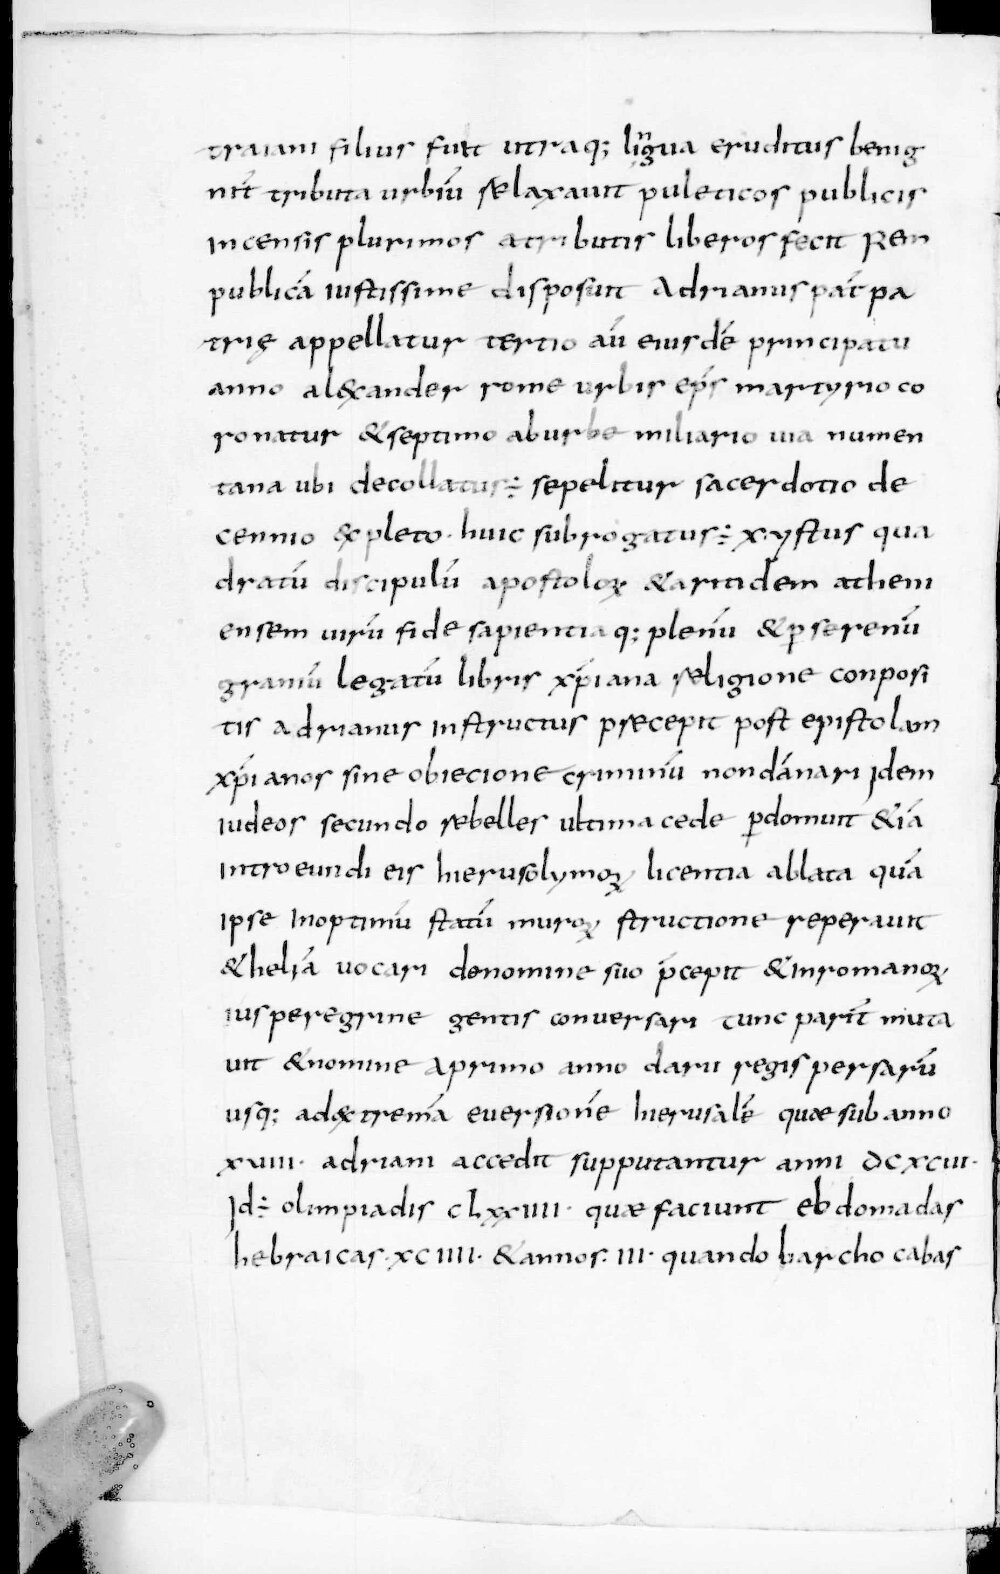 traiani filius fuit utraq; lingua eruditus benig
nit̄ tributa urbiū relaxauit puleticos publicis
incensis plurimos atributis liberos fecit Rem
publicā iustissime disposuit Adrianus pat̄ pa
trię appellatur tertio aū eiusdē principatu
anno al&xander rome urbis ep̄s martyrio co
ronatur &septimo aburbe miliario uia numen
tana ubi decollatus÷ sepelitur sacerdotio de
cennio &xpleto· huic subrogatus÷ xystus qua
dratū discipulū apostoloꝝ &aritidem atheni
ensem uirū fide sapientiaq; plenū &ꝑserenū
graniū legatū libris xp̄iana religione conposi
tis adrianus instructus præcepit post epistolam
xp̄ianos sine obiecione criminū nondānari Idem
iudeos secundo rebelles ultima cede ꝑdomuit &iā
introeundi eis hierusolymoꝝ licentia ablata quā
ipse inoptimū statū muroꝝ structione reperauit
&heliā uocari denomine suo p̄cepit &inromanoꝝ
ius peregrine gentis conuersari tunc parit̄ muta
uit &nomine Aprimo anno darii regis persarū
usq; ad&xtremā euersionē hierusalē quæ sub anno
xuiii· adriani accedit supputantur anni DCXCIII·
Id÷ olimpiadis clxxiiii· quæ faciunt ebdomadas
hebraicas·xciiii· &annos·iii· quando barcho cabas